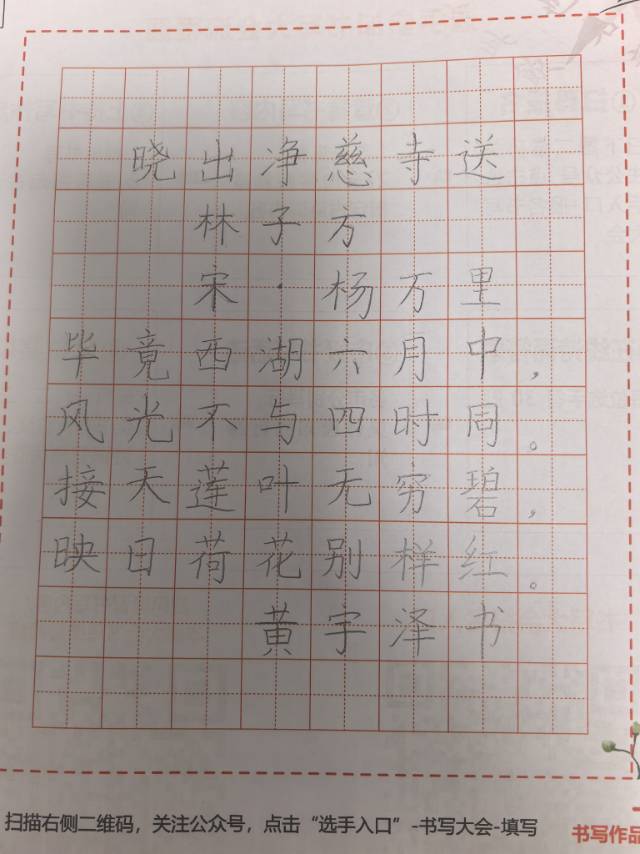 晓出净慈寺送
林子方
宋·杨万里
毕竟西湖六月中，
风光不与四时同。
接天莲叶无穷碧，
映日荷花别样红。
黄宇泽书
扫描右侧二维码，关注公众号，点击“选手入口”-书写大会-填写
书写作品